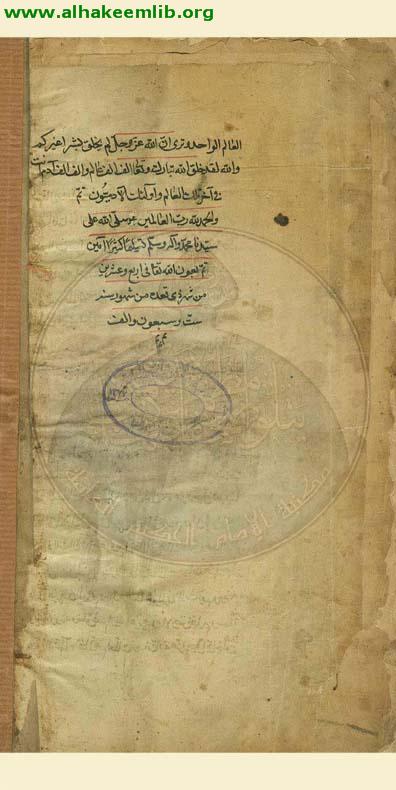 www.alhakeemlib.org
العالم الواحد وترى ان الله عز وجل لم يخلق بشرا غيركم
والله لقد خلق الله تبارك وتعالى الف الف عالم والف الف آدم انت
في آخر تلك العوالم واولئك الآدميين تم
والحمد لله رب العالمين وصلى الله على
سيدنا محمد وآله وسلم تسليما كثيرا آمين
تم بعون الله تعالى في اربع وعشرين
من شهر ذي قعده من شهور سنه
ست وسبعون والف